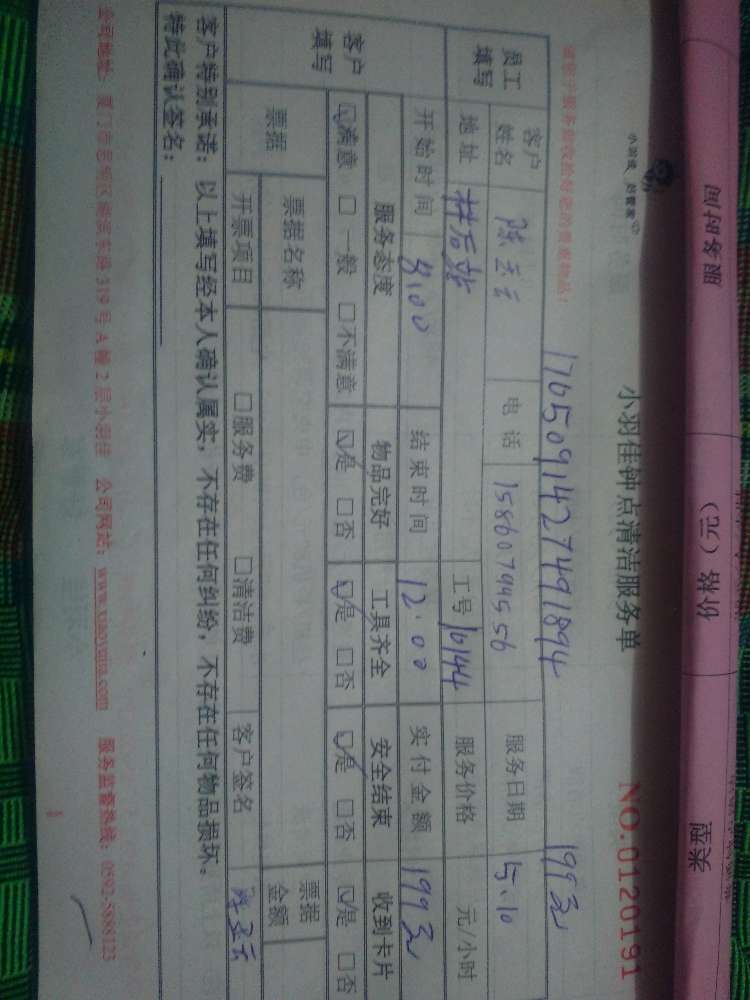 服务时间
价格（元）
类型
小羽佳钟点清洁服务单
NO.0120191
1705091427491894
199元
员工填写
客户姓名
电话 15860794556
服务日期 5.10
地址
工号 10144
服务价格 元/小时
客户填写
开始时间 8:00
结束时间 12:00
实付金额 199元
服务态度 物品完好 工具齐全 安全结束 收到卡片
☑满意 □一般 □不满意 ☑是 □否 ☑是 □否 ☑是 □否 ☑是 □否
票据
票据名称
票据金额
开票项目 □服务费 □清洁费
客户签名
客户特别承诺：以上填写经本人确认属实，不存在任何纠纷，不存在任何物品损坏。
特此确认签名：
319号A幢2层小羽佳 公司网站：www.xiaoyujia.com 服务监督热线：0592-5888123